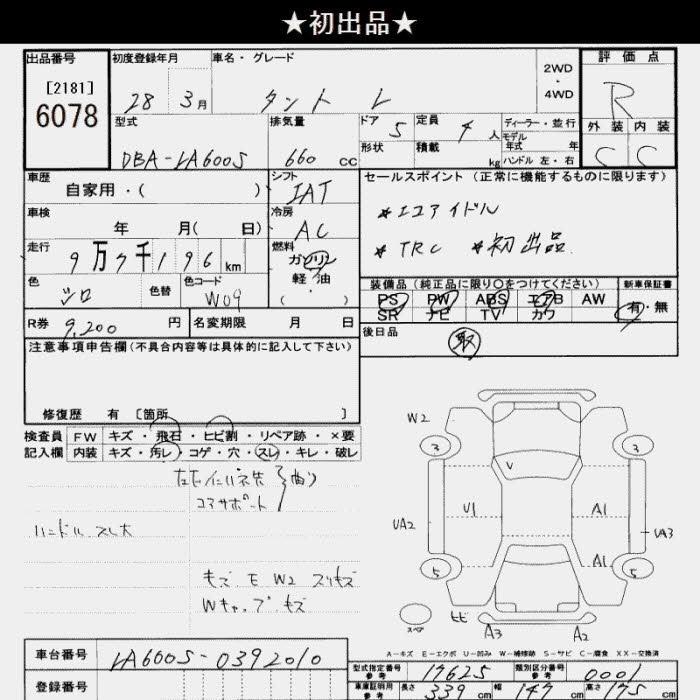 ★初出品★
出品番号
[2181]
6078
初度登録年月
28 3月
車名・グレード
タント L
2WD
・
4WD
評価点
R
外装 内装
C C
型式
DBA-LA600S
排気量
660 CC
ドア 5
形状
定員 4 人
積載 kg
ディーラー・並行
モデル
年式 年
ハンドル 左・右
車歴
自家用・( )
シフト
IAT
車検
年 月( 日)
冷房
AC
走行
9万7千196 km
燃料
ガソリン
軽・油
( )
色
シロ
色替
色コード
W09
R券 9,200 円
名変期限 月 日
セールスポイント (正常に機能するものに限ります)
★エコアイドル
★TRC ★初出品
装備品 (純正品に限り○をつけてください)
PS PW ABS エアB AW
SR ナビ TV カワ
新車保証書
有・無
後日品
取
注意事項申告欄(不具合内容等は具体的に記入して下さい)
修復歴 有 〔箇所 〕
検査員
記入欄
FW キズ・飛石・ヒビ割・リペア跡・×要
内装 キズ・汚レ・コゲ・穴・スレ・キレ・破レ
コアサポート
曲り
ハンドル スレ大
キズ E W2 スリキズ
Wキャップ キズ
W2
3
3
V
U1
A1
UA2
UA3
A1
5
5
スペア
ヒビ
A3
A2
A-キズ E-エクボ U-凹み W-補修跡 S-サビ C-腐食 XX-交換済
車台番号
LA600S-0392010
登録番号
型式指定番号
参考
17625
類別区分番号
参考
0001
車庫証明用
参考
長さ 339 cm
幅 147 cm
高さ 175 cm